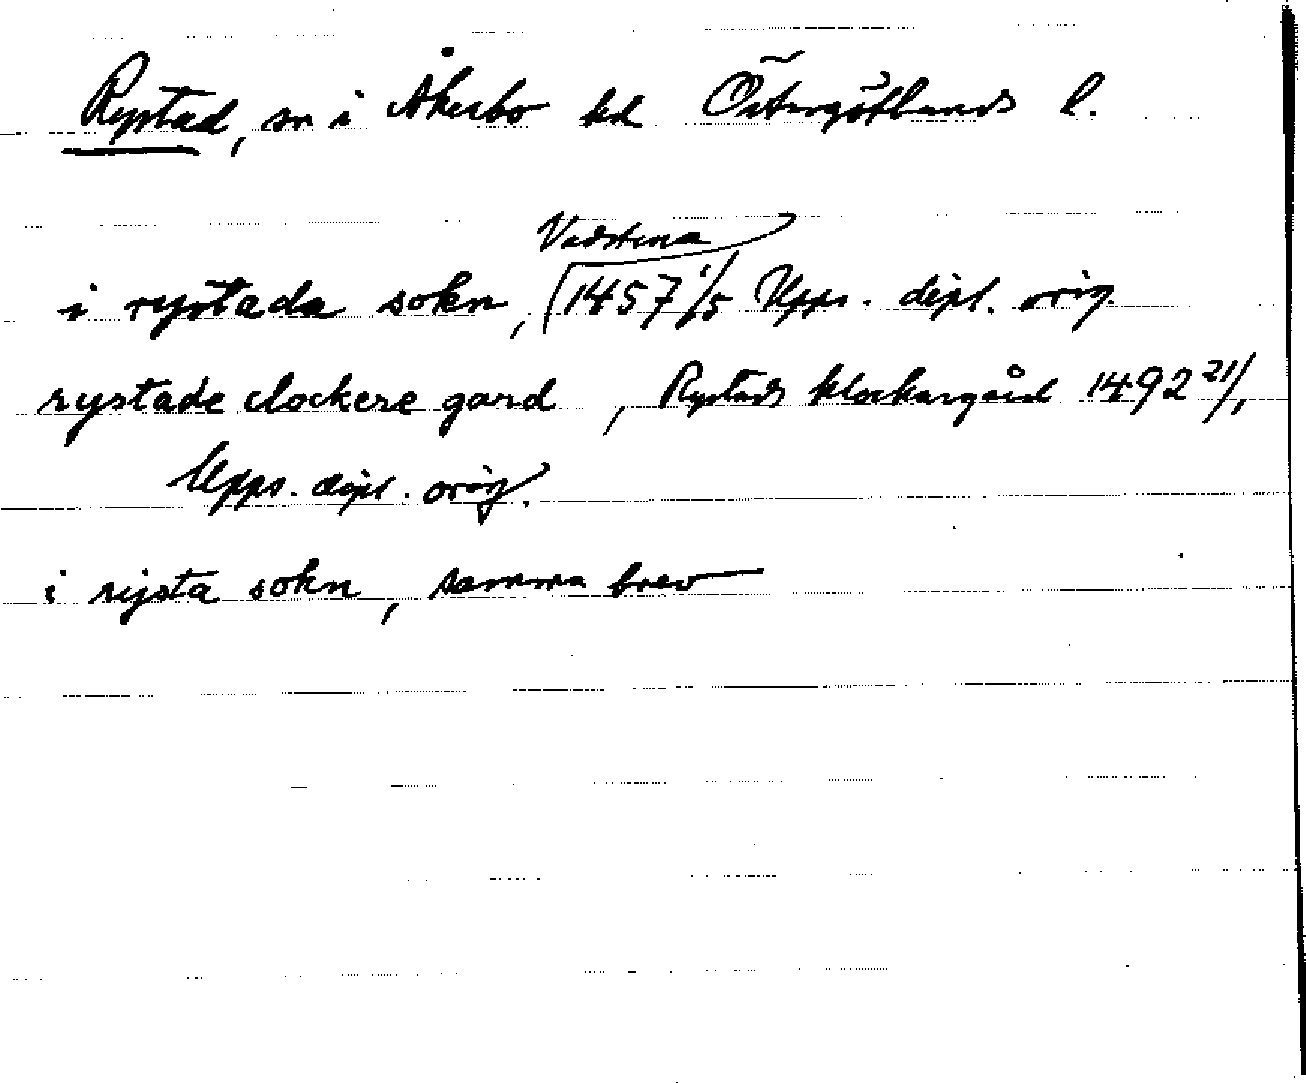 Rystad, sn i Åkerbo hd Östergötlands l.
Vadstena
i rystada sokn, 1457 1/5 Upps. dipl. orig.
rystade clockere gard, Rystads klockargård 1492 21/1
Upps. dipl. orig.
i rysta sokn, samma brev